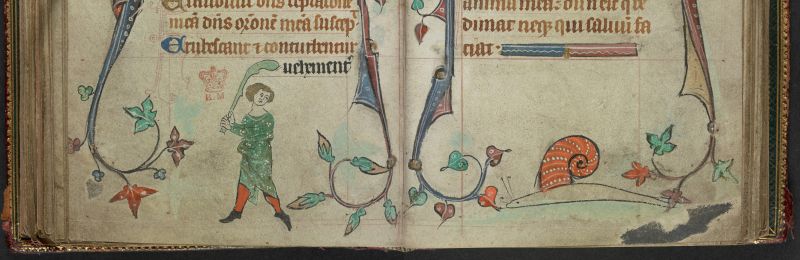 meā dn̄s or̄onē meā suscep̄
Erubescant ⁊ conturbentur
uehement̄
B.M
animā meā: dū n̄ est q̄ re
dimat neqꝫ qui saluū fa
ciat·